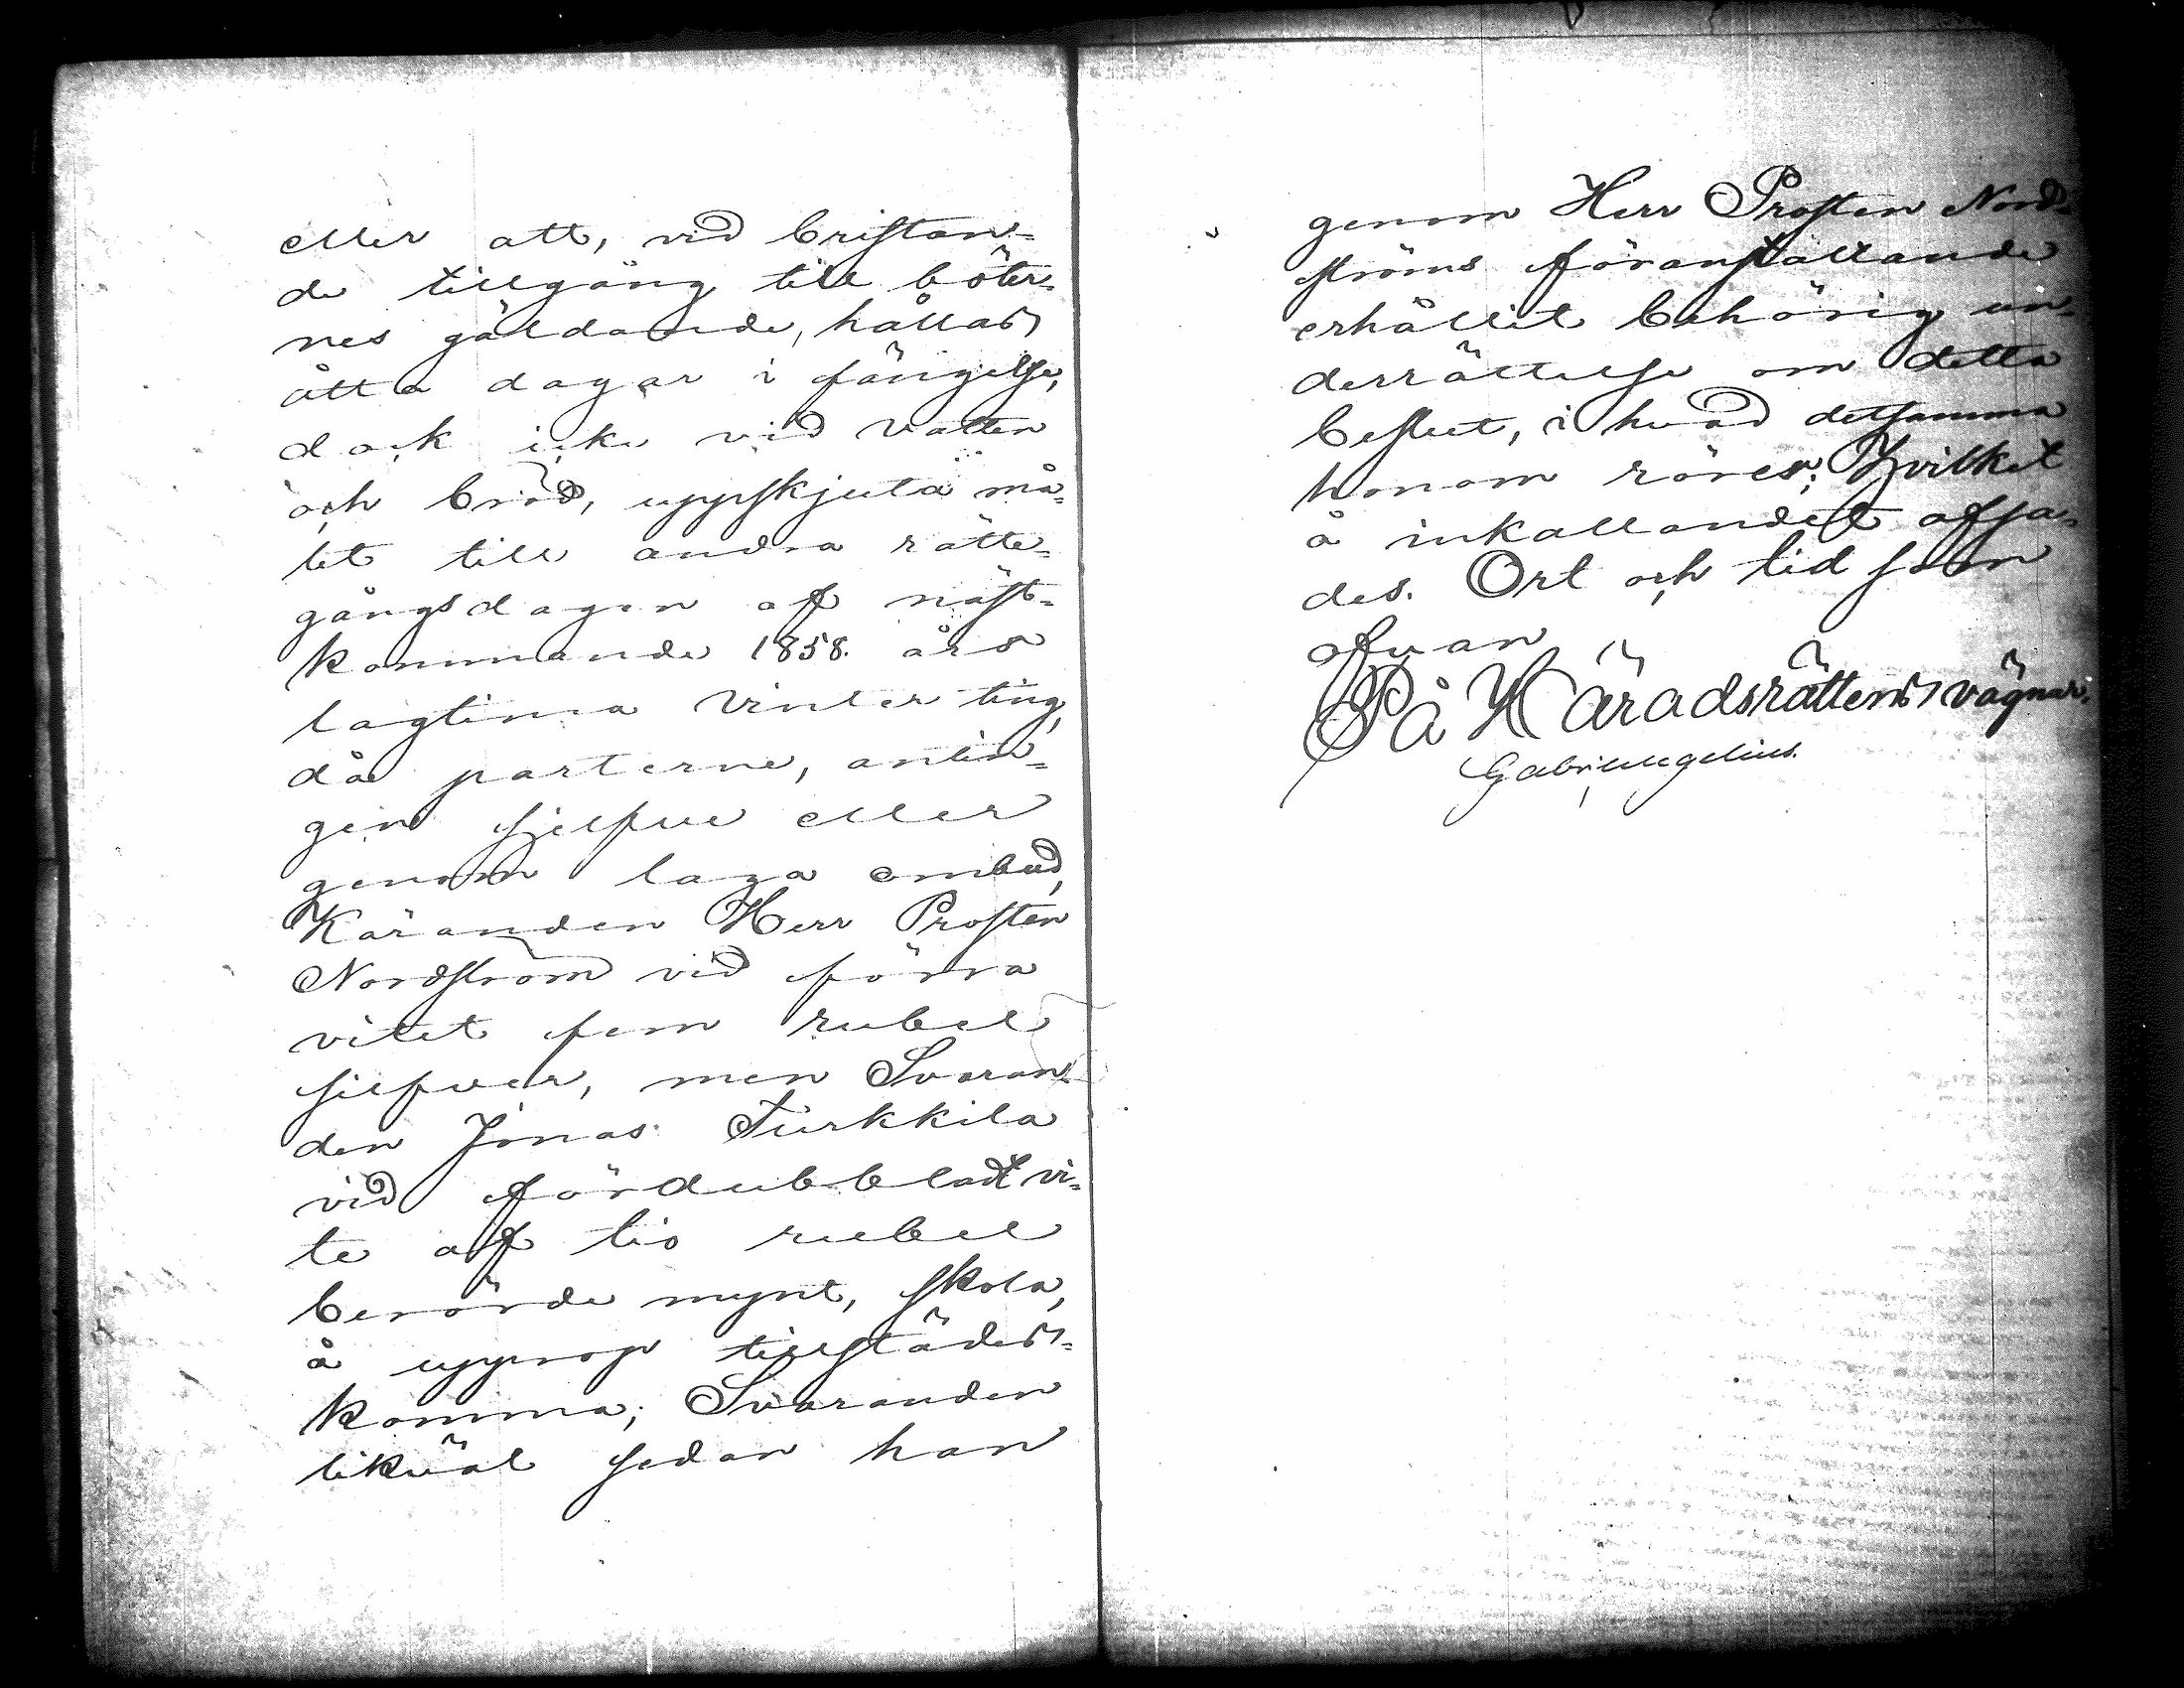 eller att, vid bristan=
de tillgång till böter=
nes gäldande, hållas
åtta dagar i fängelse,
dock icke vid vatten
och bröd, uppskjuta må=
let till andra rätte=
gångsdagen af näst=
kommande 1858. års
lagtima Vinter ting,
då parterne, antin=
gen sjelfve eller
genom laga ombud,
Käranden Herr Prosten
Nordström vid förra
vitet fem rubel
silfver, men Svaran=
den Jonas Turkkila
vid fördubbladt vi=
te af tio rubel
berörde mynt, skola,
å upprop tillstädes=
komma; Svaranden
likväl sedan han
genom Herr Prosten Nord=
ströms föranstaltande
erhållit behörig un=
derrättelse om detta
beslut, i hvad detsamma
honom rörer; Hvilket
å inkallandet afsa=
des. Ort och tid som
ofvan
På Häradsrättens vägnar: